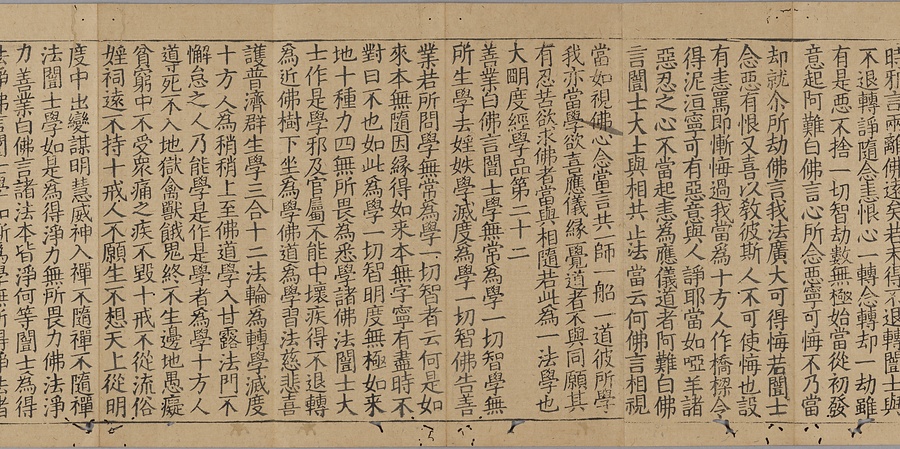 時邪言兩離佛遠矣若未得不退轉闓士與
不退轉諍隨念恚恨心一轉念轉却一劫雖
有是惡不捨一切智劫數無極始當從初發
意起阿難白佛言心所念惡寧可悔不乃當
却就尒所劫佛言我法廣大可得悔若闓士
念惡有恨又喜以教彼斯人不可使悔也設
有恚罵即慚悔過我當為十方人作橋樑令
得泥洹寧可有惡意與人諍耶當如啞羊諸
惡忍之心不當起恚為應儀道者阿難白佛
言闓士大士與相共止法當云何佛言相視
當如視佛心念當言共一師一船一道彼所學
我亦當學欲喜應儀緣覺道者不與同願其
有忍苦欲求佛者當與相隨若此為一法學也
大明度經學品第二十二
善業白佛言闓士學無常為學一切智學無
所生學去婬妷學滅度為學一切智佛告善
業若所問學無常為學一切智者云何是如
來本無隨因緣得如來本無字寧有盡時不
對曰不也如此為學一切智明度無極如來
地十種力四無所畏為悉學諸佛法闓士大
士作是學邪及官屬不能中壞疾得不退轉
為近佛樹下坐為學佛道為學習法慈悲喜
護普濟群生學三合十二法輪為轉學滅度
十方人為稍稍上至佛道學入甘露法門不
懈怠之人乃能學是作是學者為學十方人
導死不入地獄禽獸餓鬼終不生邊地愚癡
貧窮中不受衆痛之疾不毀十戒不從流俗
婬祠遠不持十戒人不願生不想天上從明
度中出變謀明慧威神入禪不隨禪不隨禪
法闓士學如是為得淨力無所畏力佛法淨
力善業白佛言諸法本皆淨何等闓士為得